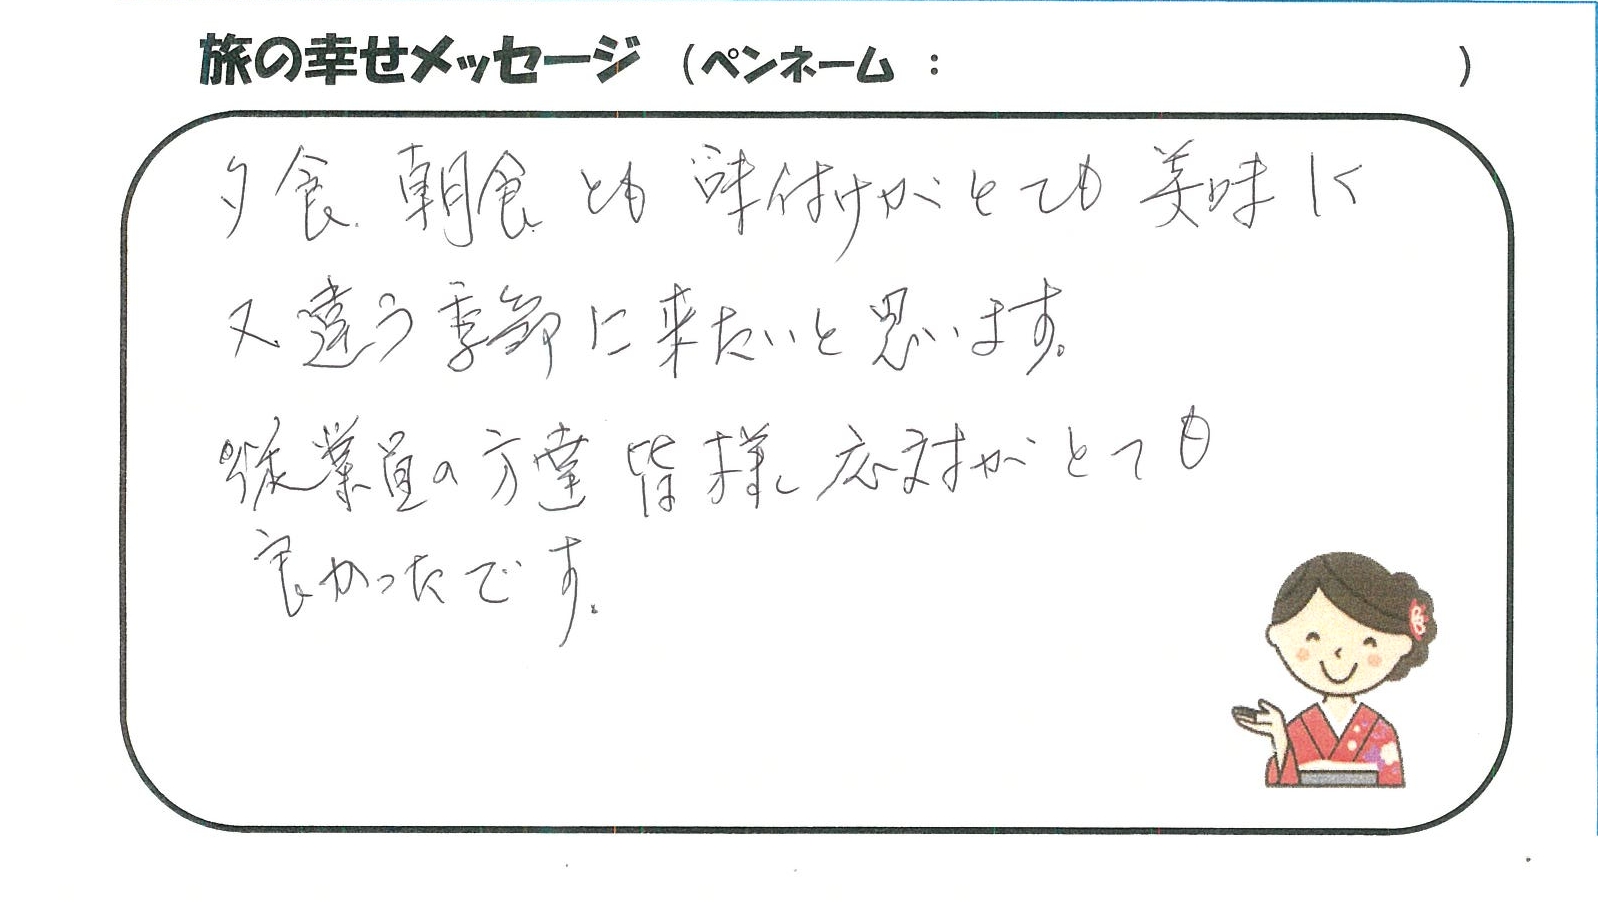 旅の幸せメッセージ (ペンネーム : )
夕食、朝食とも味付けがとても美味しく
又違う季節に来たいと思います。
従業員の方達皆様し応対がとても
良かったです。